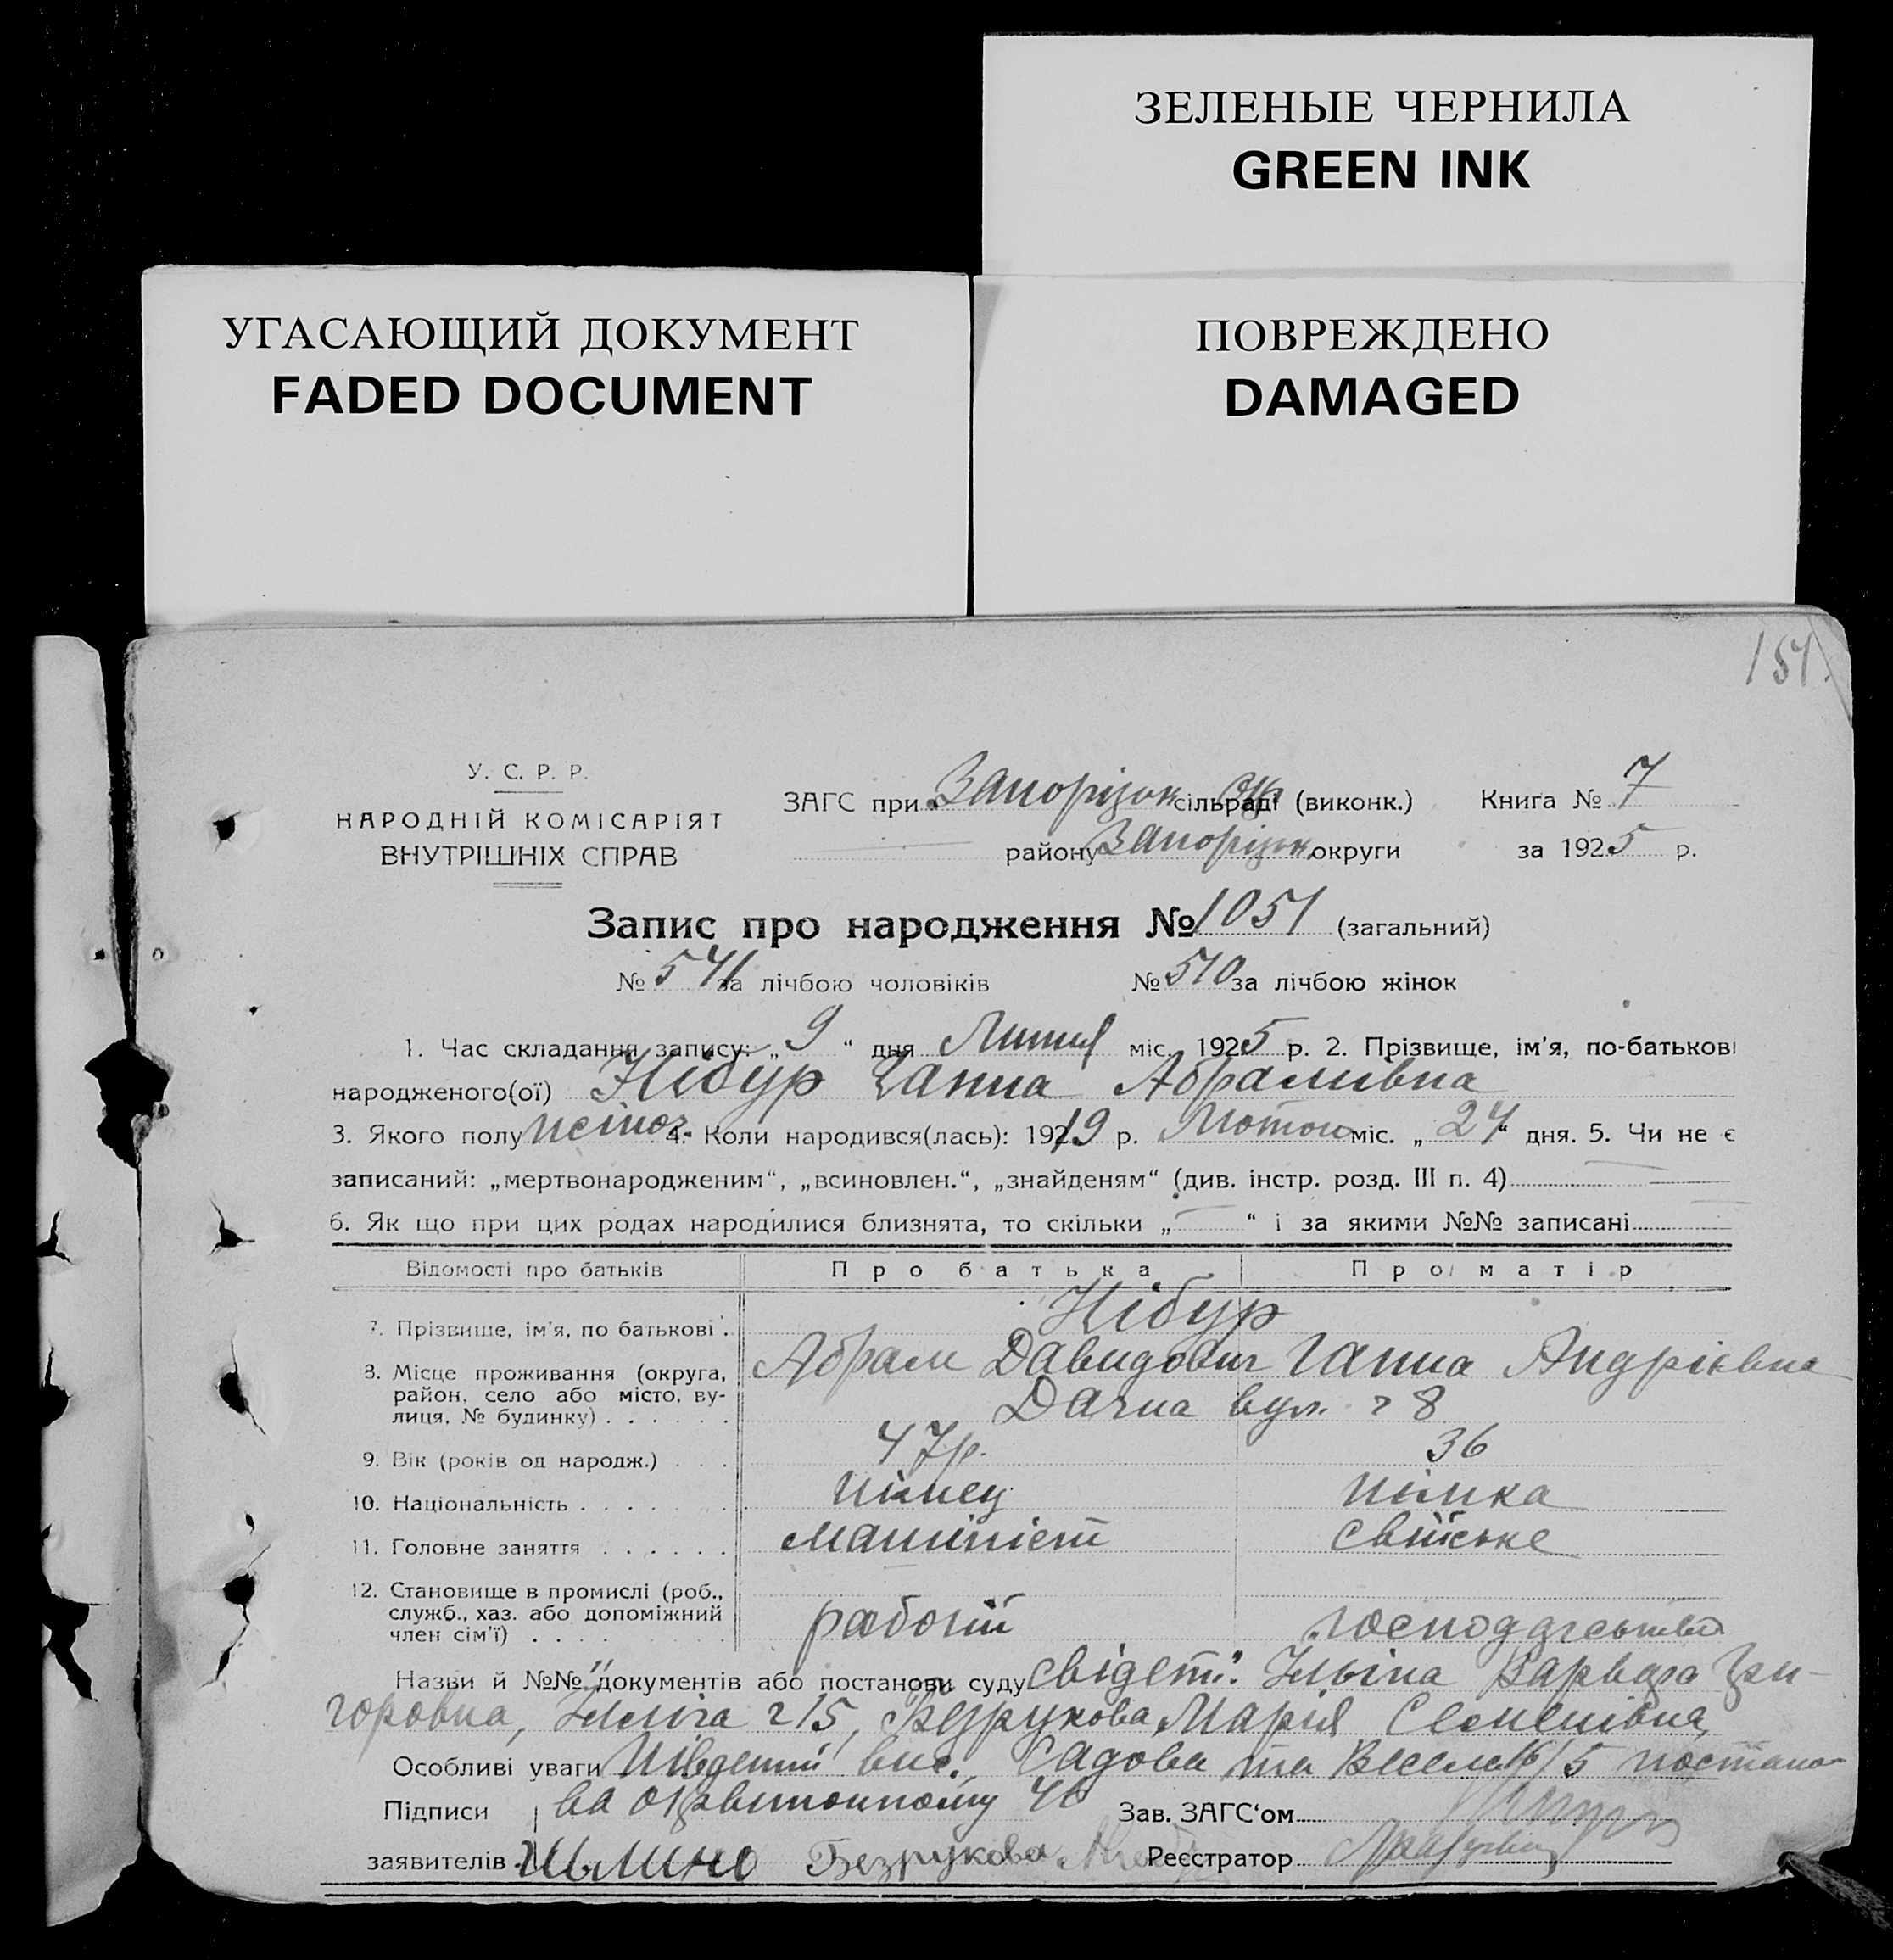 ЗЕЛЕНЫЕ ЧЕРНИЛА
GREEN INK
УГАСАЮЩИЙ ДОКУМЕНТ
FADED DOCUMENT
ПОВРЕЖДЕНО
DAMAGED
151
У. С. Р. Р.
НАРОДНІЙ КОМІСАРІЯТ
ВНУТРІШНІХ СПРАВ
ЗАГС при Запорізьк сільраді (виконк.) Книга № 7
району Запорізьк округи за 1925 р.
Запис про народження № 1051 (загальний)
№ 541 за лічбою чоловіків № 510 за лічбою жінок
1. Час складання запису: „9“ дня Липня міс. 1925 р. 2. Прізвище, ім'я, по-батькові
народженого(ої) Нібур Ганна Абрамівна
3. Якого полу жіноч. 4. Коли народився(лась): 1919 р. Лютого міс. „24“ дня. 5. Чи не є
записаний: „мертвонародженим“, „всиновлен.“, „знайденям“ (див. інстр. розд. III п. 4)
6. Як що при цих родах народилися близнята, то скільки „—“ і за якими №№ записані
Відомості про батьків Про батька Про матір
7. Прізвише, ім'я, по батькові Нібур
Абрам Давидович Ганна Андрієвна
8. Місце проживання (округа,
район, село або місто, ву-
лиця, № будинку) Дачна вул. 8
9. Вік (років од народж.) 47р. 36
10. Національність німец німка
11. Головне заняття машініст свійське
12. Становище в промислі (роб.,
служб., хаз. або допоміжний
член сім'ї) рабочій господарство
Назви й №№ документів або постанови суду свідет: Ільіна Варвара Гри-
горовна, 15, Безрукова Марія Семенівна,
Особливі уваги Південні вис., Садова та Весела 16/5 постано-
Підписи ва Зав. ЗАГС'ом
заявителів Ильина Безрукова Реєстратор